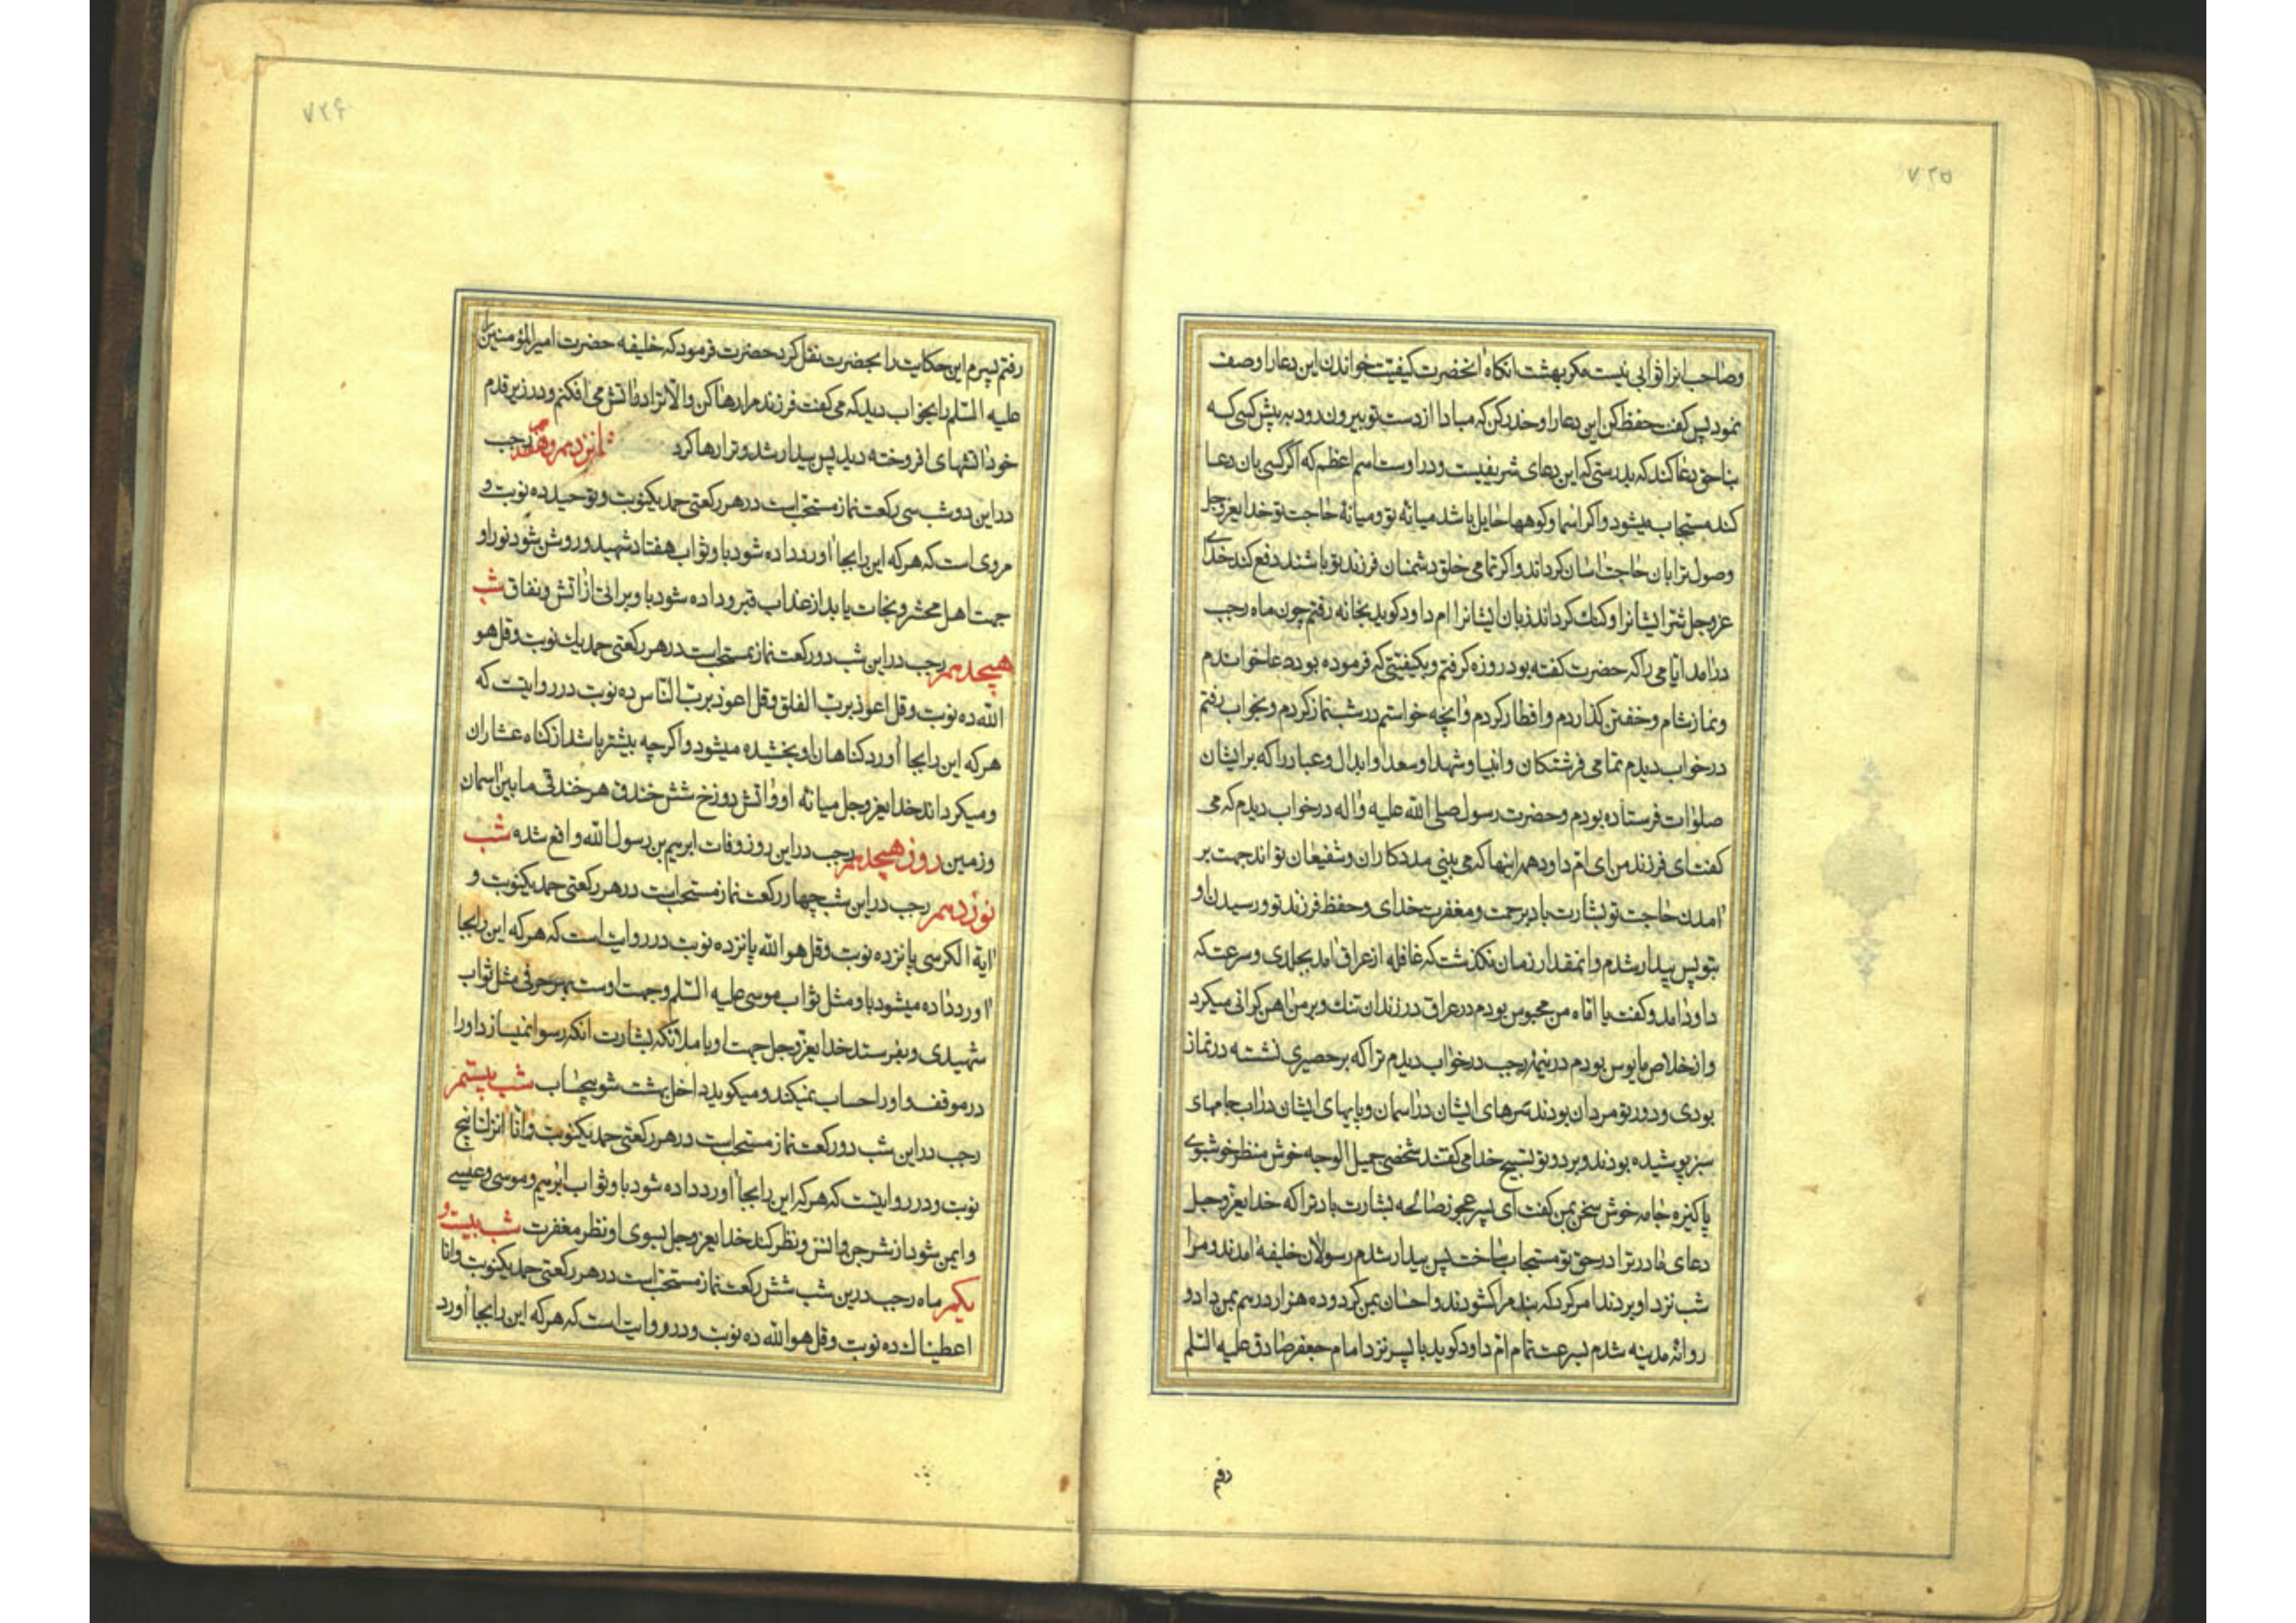 ۷۲۵
وصاحب انرا ثوابی نیست مکر بهشت انکاه انحضرت کیفیت خواندن این دعا را وصف
نمود پس کفت حفظ کن این دعا را وحذر کن که مبادا از دست تو بیرون رود به پیش کسی که
بناحق دعا کند که بدرستی که این دعای شریفیست ودر اوست اسم اعظم که اکر کسی بان دعا
کند مستجاب میشود واکر اسما وکوهها حایل باشد میانه تو ومیانهٔ حاجت تو خدایعزوجل
وصول ترا بان حاجت اسان کرداند واکر تمامی خلق دشمنان فرزند تو باشند دفع کند خدای
عزوجل شر ایشانرا وکنک کرداند زبان ایشانرا ام داود کوید بخانه رفتم چون ماه رجب
درامد ایامی را که حضرت کفته بود روزه کرفتم وبکیفیتی که فرموده بود دعا خواندم
ونماز شام وخفتن کذاردم وافطار کردم وانچه خواستم در شب نماز کردم وبخواب رفتم
درخواب دیدم تمامی فرشتکان وانبیا وشهدا وسعدا وابدال وعباد را که بر ایشان
صلوات فرستاده بودم وحضرت رسول صلی الله علیه واله درخواب دیدم که می
کفت ای فرزند من ای ام داود همه اینها که می بینی مددکاران وشفیعان تو اند جهت بر
امدن حاجت تو بشارت باد برحمت ومغفرت خدای وحفظ فرزند تو ورسیدن او
بتو پس بیدار شدم وانمقدار زمان نکذشت که غافله از عراق امد بجلدی وسرعت که
داود امد وکفت یا اماه من محبوس بودم در عراق در زندان تنک وبر من اهن کرانی میکرد
واز خلاص مایوس بودم در نیمهٔ رجب درخواب دیدم ترا که بر حصیری نشسته در نماز
بودی ودور تو مردان بودند سرهای ایشان در اسمان وپایهای ایشان در اب جامهای
سبز پوشیده بودند وبر دور تو تسبیح خدا می کفتند شخصی جمیل الوجه خوش منظر خوشبوی
پاکیزه جامه خوش سخن بمن کفت ای پسر عجوز صالحه بشارت باد ترا که خدایعزوجل
دعای مادر ترا در حق تو مستجاب ساخت پس بیدار شدم رسولان خلیفه امدند ومرا
شب نزد او بردند امر کرد که بند مرا کشودند واحسان بمن کرد وده هزار درهم بمن داد و
روانه مدینه شدم بسرعت تمام ام داود کوید با پسر نزد امام جعفر صادق علیه السلم
رفتم
۷۲۶
رفتم پسرم این حکایت را بحضرت نقل کرد حضرت فرمود که خلیفه حضرت امیرالمؤمنین
علیه السلم را بخواب دید که می کفت فرزند مرا رها کن والا ترا در اتش می افکنم ودر زیر قدم
خود اتشهای افروخته دید پس بیدار شد وترا رها کرد شانزدهم وهفدهم رجب
در این دو شب سی رکعت نماز مستحب است در هر رکعتی حمد یکنوبت وتوحید ده نوبت و
مروی است که هر که این را بجا اورد داده شود باو ثواب هفتاد شهید وروشن شود نور او
جهت اهل محشر ونجات یابد از عذاب قبر وداده شود باو براتی از اتش ونفاق شب
هیجدهم رجب در این شب دو رکعت نماز مستحب است در هر رکعتی حمد یک نوبت وقل هو
الله ده نوبت وقل اعوذ برب الفلق وقل اعوذ برب الناس ده نوبت در روایتست که
هر که این را بجا اورد کناهان او بخشیده میشود واکرچه بیشتر باشد از کناه عشاران
ومیکرداند خدایعزوجل میانهٔ او واتش دوزخ شش خندق هر خندقی مابین اسمان
وزمین روز هیجدهم رجب در این روز وفات ابرهیم بن رسول الله واقع شده شب
نوزدهم رجب در این شب چهار رکعت نماز مستحب است در هر رکعتی حمد یکنوبت و
ایة الکرسی پانزده نوبت وقل هو الله پانزده نوبت در روایت است که هر که این را بجا
اورد داده میشود باو مثل ثواب موسی علیه السلم وجهت اوست بهر حرفی مثل ثواب
شهیدی وبفرستد خدایعزوجل جهت او با ملائکه بشارت انکه رسوا نمیسازد او را
در موقف واو را حساب نمیکند ومیکوید داخل بهشت شو بیحساب شب بیستم
رجب در این شب دو رکعت نماز مستحب است در هر رکعتی حمد یکنوبت وانا انزلنا پنج
نوبت ودر روایتست که هر که این را بجا اورد داده شود باو ثواب ابرهیم وموسی وعیسی
وایمن شود از شر جن وانس ونظر کند خدایعزوجل بسوی او نظر مغفرت شب بیست و
یکم ماه رجب درین شب شش رکعت نماز مستحب است در هر رکعتی حمد یکنوبت وانا
اعطیناک ده نوبت وقل هو الله ده نوبت ودر روایت است که هر که این را بجا اورد